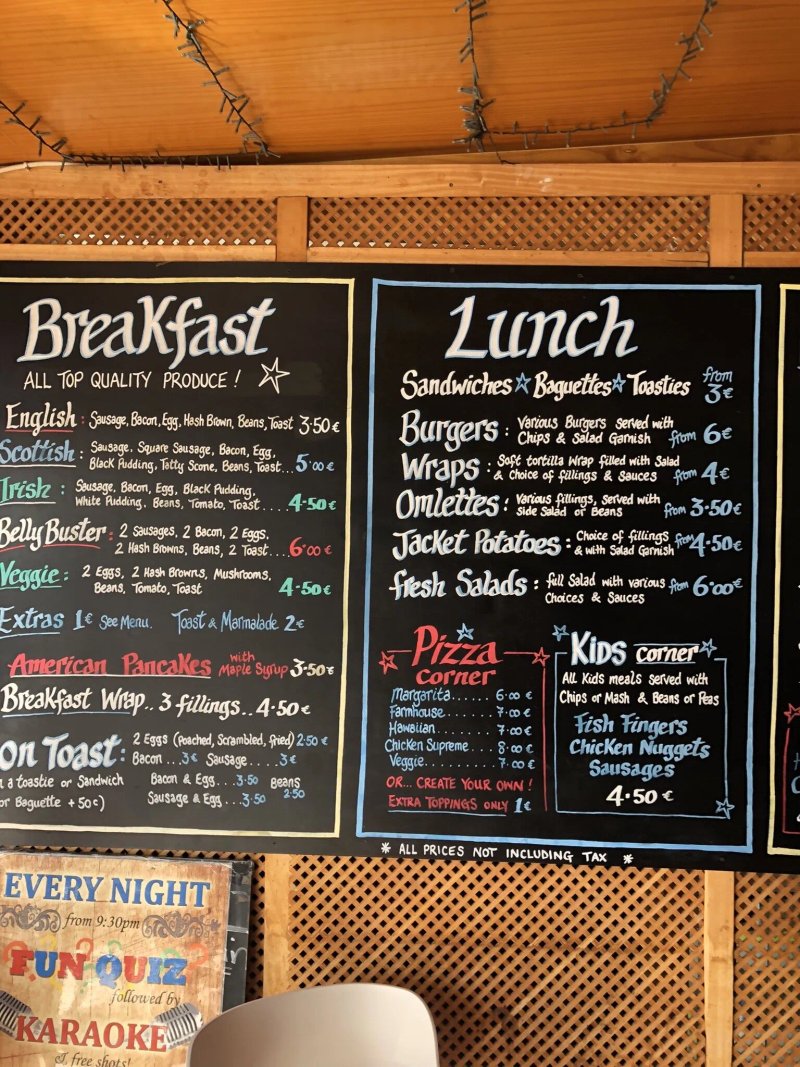 Breakfast
ALL TOP QUALITY PRODUCE !
English : Sausage, Bacon, Egg, Hash Brown, Beans, Toast 3·50 €
Scottish : Sausage, Square Sausage, Bacon, Egg,
Black Pudding, Tatty Scone, Beans, Toast... 5·00 €
Irish : Sausage, Bacon, Egg, Black Pudding,
White Pudding, Beans, Tomato, Toast.... 4·50 €
Belly Buster : 2 Sausages, 2 Bacon, 2 Eggs,
2 Hash Browns, Beans, 2 Toast... 6·00 €
Veggie : 2 Eggs, 2 Hash Browns, Mushrooms,
Beans, Tomato, Toast 4·50 €
Extras 1€ See Menu. Toast & Marmalade 2€
American Pancakes with Maple Syrup 3·50€
Breakfast Wrap.. 3 fillings.. 4·50 €
on Toast : 2 Eggs (Poached, Scrambled, fried) 2·50 €
Bacon ... 3€ Sausage .... 3€
a toastie or Sandwich Bacon & Egg ... 3·50 Beans
or Baguette + 50c) Sausage & Egg ... 3·50 2·50
Lunch
Sandwiches ☆ Baguettes ☆ Toasties from 3€
Burgers : Various Burgers served with
Chips & Salad Garnish from 6€
Wraps : Soft tortilla wrap filled with Salad
& Choice of fillings & Sauces from 4€
Omlettes : Various fillings, served with
side Salad or Beans from 3·50€
Jacket Potatoes : Choice of fillings
& with Salad Garnish from 4·50€
fresh Salads : full Salad with various
Choices & Sauces from 6·00€
Pizza
corner
Margarita...... 6·00 €
Farmhouse....... 7·00 €
Hawaiian ....... 7·00 €
Chicken Supreme... 8·00 €
Veggie ........ 7·00 €
OR... CREATE YOUR OWN !
EXTRA TOPPINGS ONLY 1€
KIDS corner
All Kids meals served with
Chips or Mash & Beans or Peas
Fish Fingers
Chicken Nuggets
Sausages
4·50 €
* ALL PRICES NOT INCLUDING TAX *
EVERY NIGHT
from 9:30pm
FUN QUIZ
followed by
KARAOKE
& free shots!